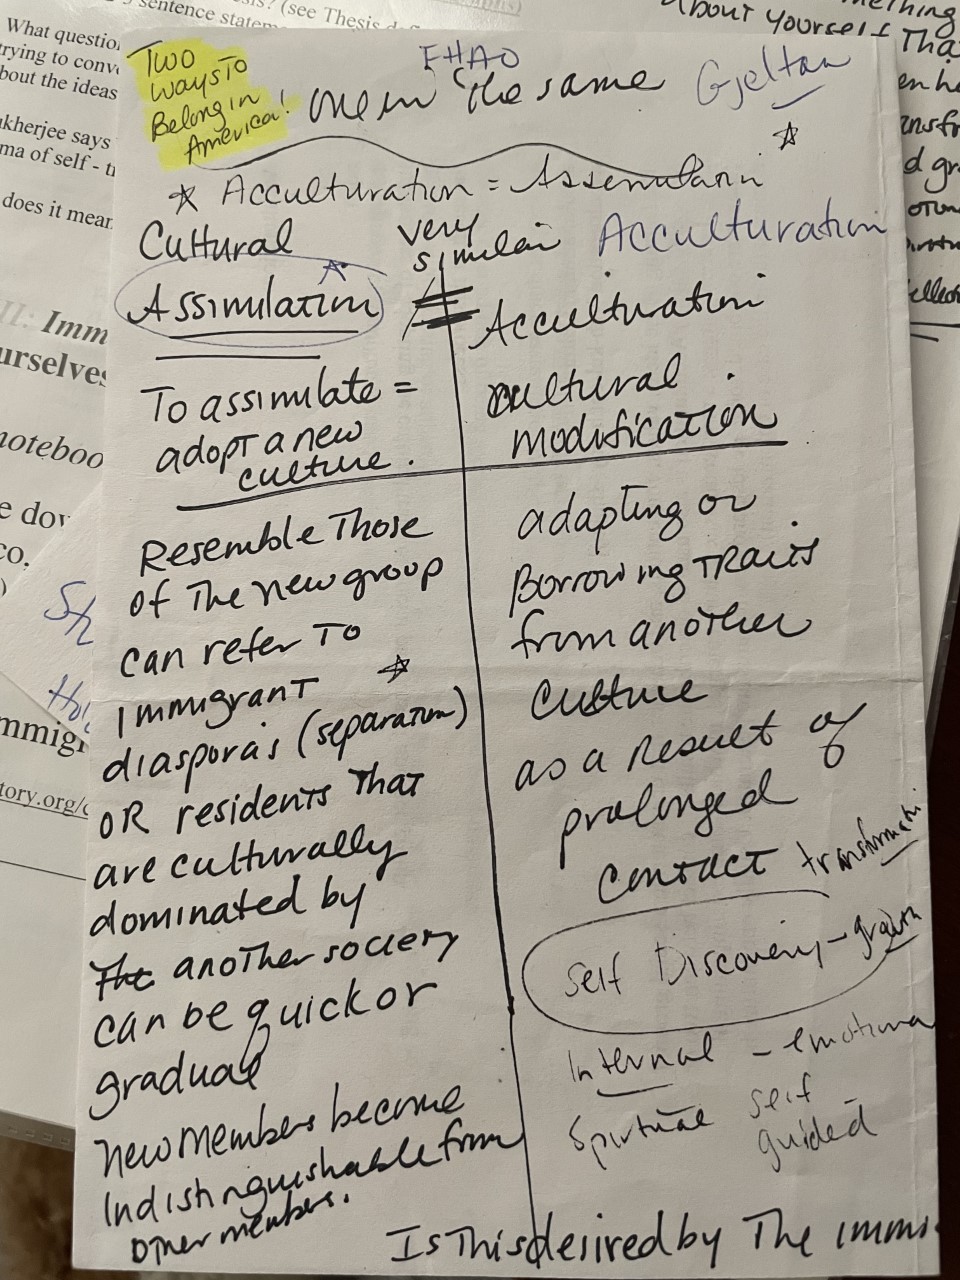 sis? (see Thesis
sentence statem
What questio
trying to conv
bout the ideas
kherjee says
ma of self - t
does it mean
II: Imm
urselves
noteboo
e dow
co.
mmigr
tory.org/
ething
About yourself Tha
en he
ansfo
d gr
Two
ways To
Belong in
America!
EHAO
one in the same
Gjeltan
* Acculturation = Assemulation
Cultural
Assimilation
very
similar
Acculturation
Acculturation
To assimilate =
adopt a new
culture.
cultural
modification
Resemble Those
of The new group
can refer To
Immigrant
diasporas (separation)
OR residents That
are culturally
dominated by
The another society
can be quick or
gradual
new members become
Indistinguishable from
other members.
adapting or
Borrowing TRaits
from another
Culture
as a Result of
prolonged
contact transformati
Self Discovery - growth
Internal - emotiona
Spirtual self
guided
Is This desired by The immi